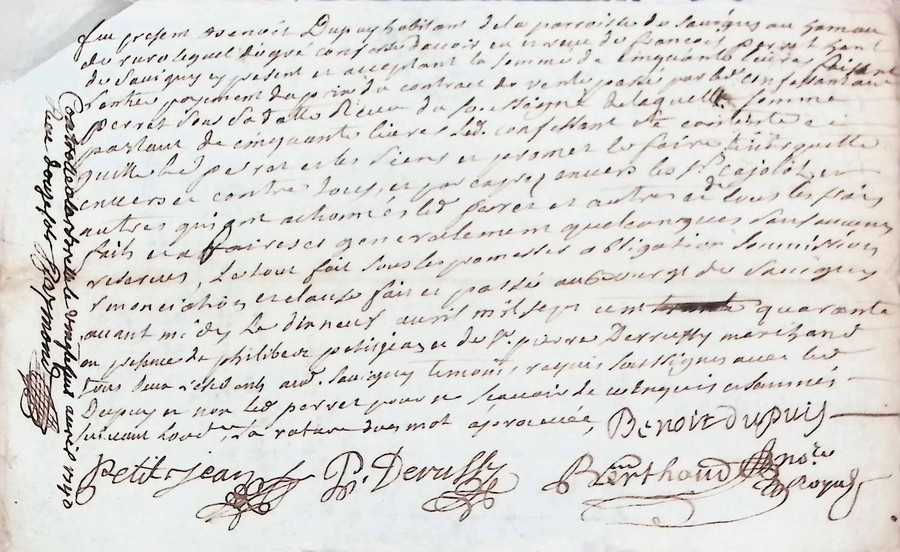 fut present Benoist Dupuy habitant de la parroisse de Savigny au hameau
de lequel de gré confesse d'avoir eu et receu de francois perret
de Savigny cy present et acceptant la somme de cinquante livres faisant
l'entier payement du prix du contract de vente passé par led. confessant aud.
perret sous sa datte Receu de Me laquelle somme
partant de cinquante livres led. confessant s'est contenté et
quitte led perret et les siens et promet le faire tenir quitte
envers et contre tous, et par exprez envers les Srs Cajolot et
autres qui ont actionnés led perret et autres et de tous les frais
faits et affaires et generalement quelconques sans aucunes
reserves, Le tout fait sous les promesses obligation soumissions
renonciations et clause fait et passé au Bourg de Savigny
avant midy Le dix neuf avril mil sept cent quarante
en presence de philibert petitjean et de Sr. pierre Derussy marchand
tous deux residants aud. Savigny temoins requis soussignés avec led
Dupuy et non led perret pour ne sçavoir de ce enquis et sommés
suivant l'ord., La rature d'un mot aprouvée, Benoit Dupuis
Petit-jean P. Derussy Berthaud nore Royal
Controllé a la arbresle le vingt avril 1740
Receu douze sols Raymond